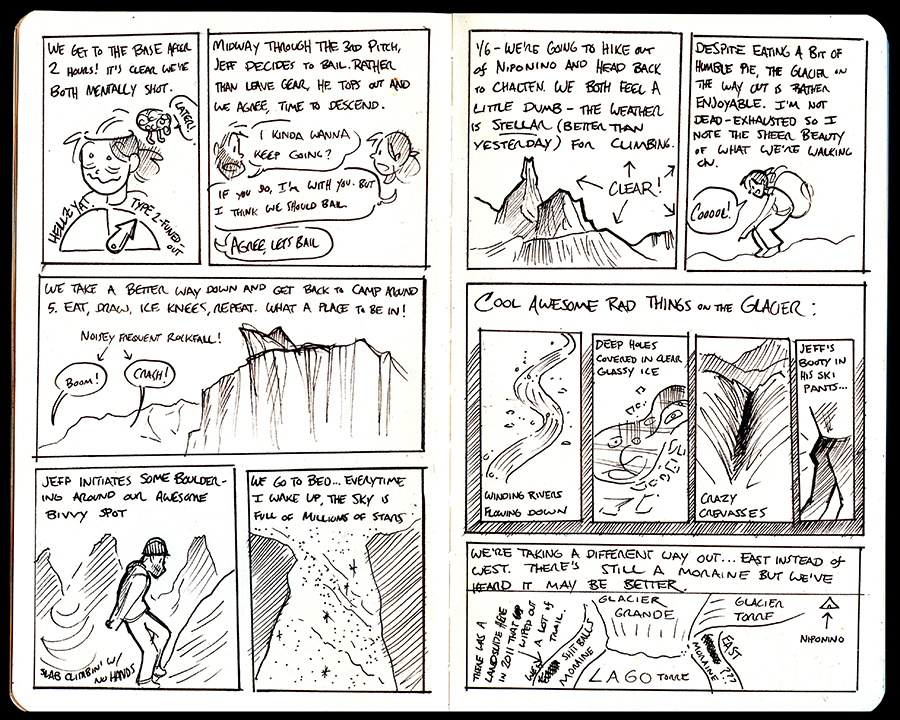 WE GET TO THE BASE AFTER
2 HOURS! IT'S CLEAR WE'RE
BOTH MENTALLY SHOT.
LATER!
HELLZ YA!
TYPE 2-FUNED-
OUT
MIDWAY THROUGH THE 3RD PITCH,
JEFF DECIDES TO BAIL. RATHER
THAN LEAVE GEAR, HE TOPS OUT AND
WE AGREE, TIME TO DESCEND.
I KINDA WANNA
KEEP GOING?
IF YOU DO, I'M WITH YOU. BUT
I THINK WE SHOULD BAIL.
AGREE, LETS BAIL
WE TAKE A BETTER WAY DOWN AND GET BACK TO CAMP AROUND
5. EAT, DRAW, ICE KNEES, REPEAT. WHAT A PLACE TO BE IN!
NOISEY FREQUENT ROCKFALL!
BOOM!
CRASH!
JEFF INITIATES SOME BOULDER-
ING AROUND OUR AWESOME
BIVVY SPOT
SLAB CLIMBIN' W/
NO HANDS
WE GO TO BED... EVERYTIME
I WAKE UP, THE SKY IS
FULL OF MILLIONS OF STARS
1/6 - WE'RE GOING TO HIKE OUT
OF NIPONINO AND HEAD BACK
TO CHALTEN. WE BOTH FEEL A
LITTLE DUMB - THE WEATHER
IS STELLAR (BETTER THAN
YESTERDAY) FOR CLIMBING.
CLEAR!
DESPITE EATING A BIT OF
HUMBLE PIE, THE GLACIER ON
THE WAY OUT IS RATHER
ENJOYABLE. I'M NOT
DEAD-EXHAUSTED SO I
NOTE THE SHEER BEAUTY
OF WHAT WE'RE WALKING
ON.
COOOOL!
COOL AWESOME RAD THINGS ON THE GLACIER:
WINDING RIVERS
FLOWING DOWN
DEEP HOLES
COVERED IN CLEAR
GLASSY ICE
CRAZY
CREVASSES
JEFF'S
BOOTY IN
HIS SKI
PANTS...
WE'RE TAKING A DIFFERENT WAY OUT... EAST INSTEAD OF
WEST. THERE'S STILL A MORAINE BUT WE'VE
HEARD IT MAY BE BETTER.
THERE WAS A
LANDSLIDE HERE
IN 2011 THAT
WIPED OUT
A LOT OF
TRAIL.
WEST
SHITBALLS
MORAINE
GLACIER
GRANDE
LAGO TORRE
GLACIER
TORRE
EAST
MORAINE
???
NIPONINO